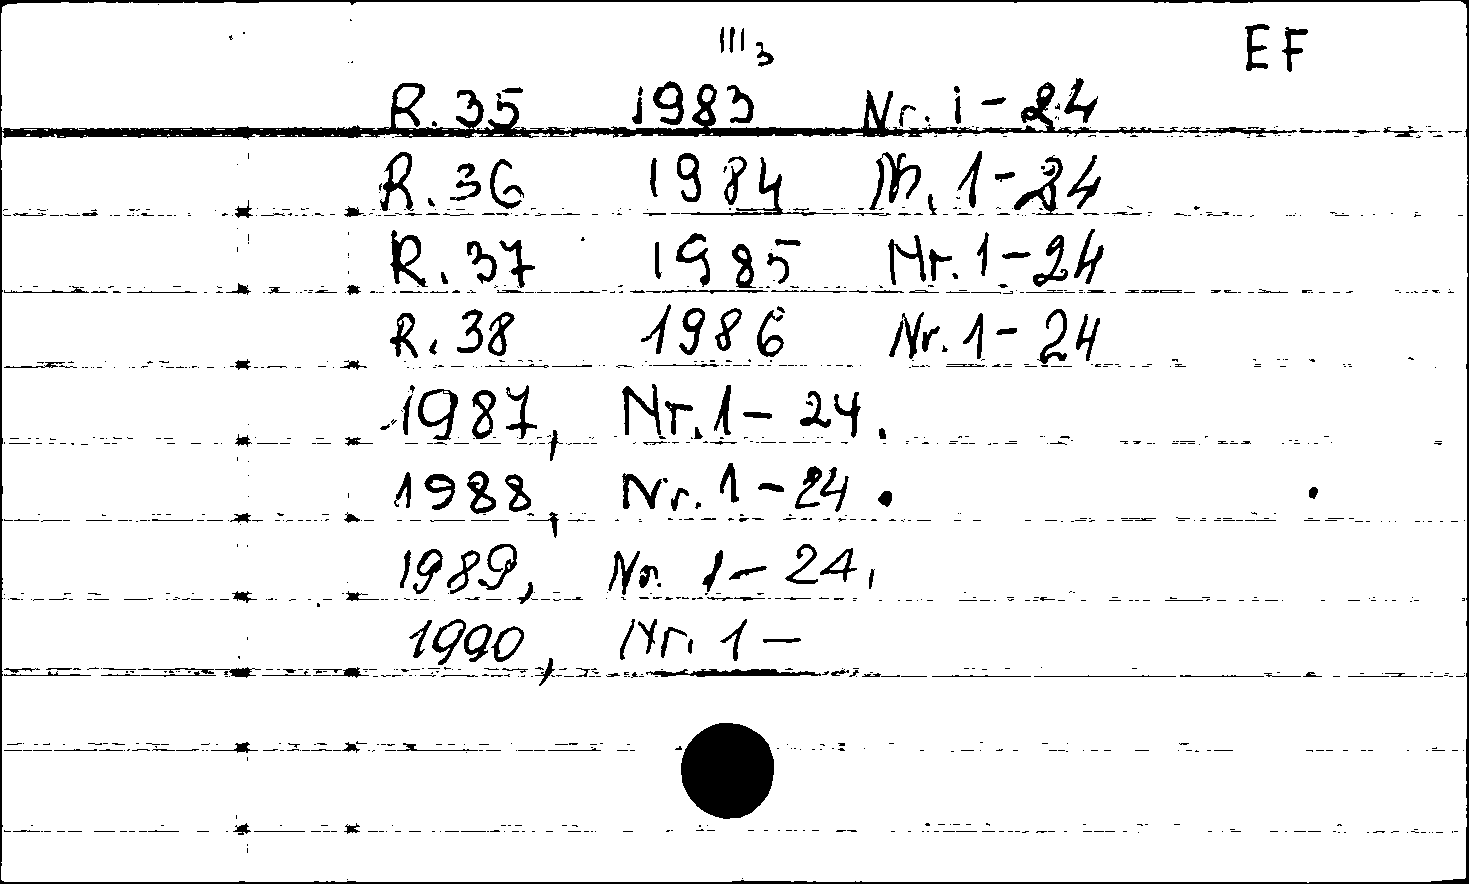 III3 EF
R. 35 1983 Nr. 1-24
R. 36 1984 Nr. 1-24
R. 37 1985 Nr. 1-24
R. 38 1986 Nr. 1-24
1987, Nr. 1-24.
1988, Nr. 1-24.
1989, Nr. 1-24,
1990, Nr. 1-